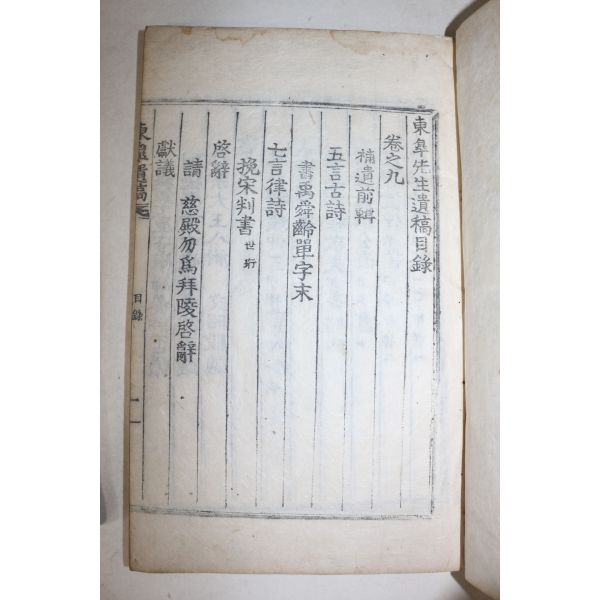 東皐先生遺稿目錄
卷之九
補遺前輯
五言古詩
書禹舜齡單字末
七言律詩
挽宋判書 世珩
啓辭
請 慈殿勿爲拜陵啓辭
獻議
東皐遺稿
目錄
一